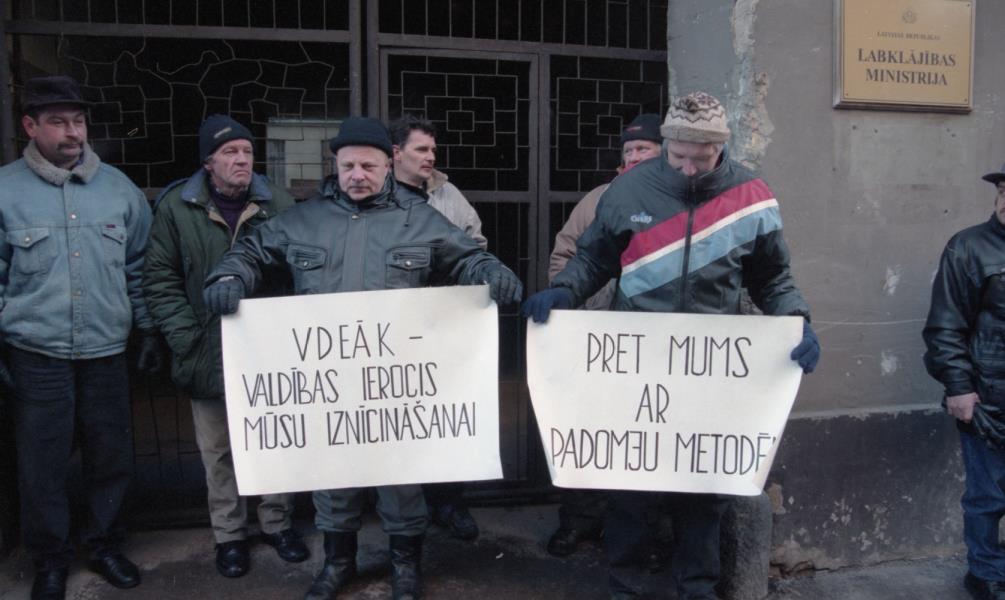 LATVIJAS REPUBLIKAS
LABKLĀJĪBAS
MINISTRIJA
VDEĀK –
VALDĪBAS IEROCIS
MŪSU IZNĪCINĀŠANAI
PRET MUMS
AR
PADOMJU METODĒ